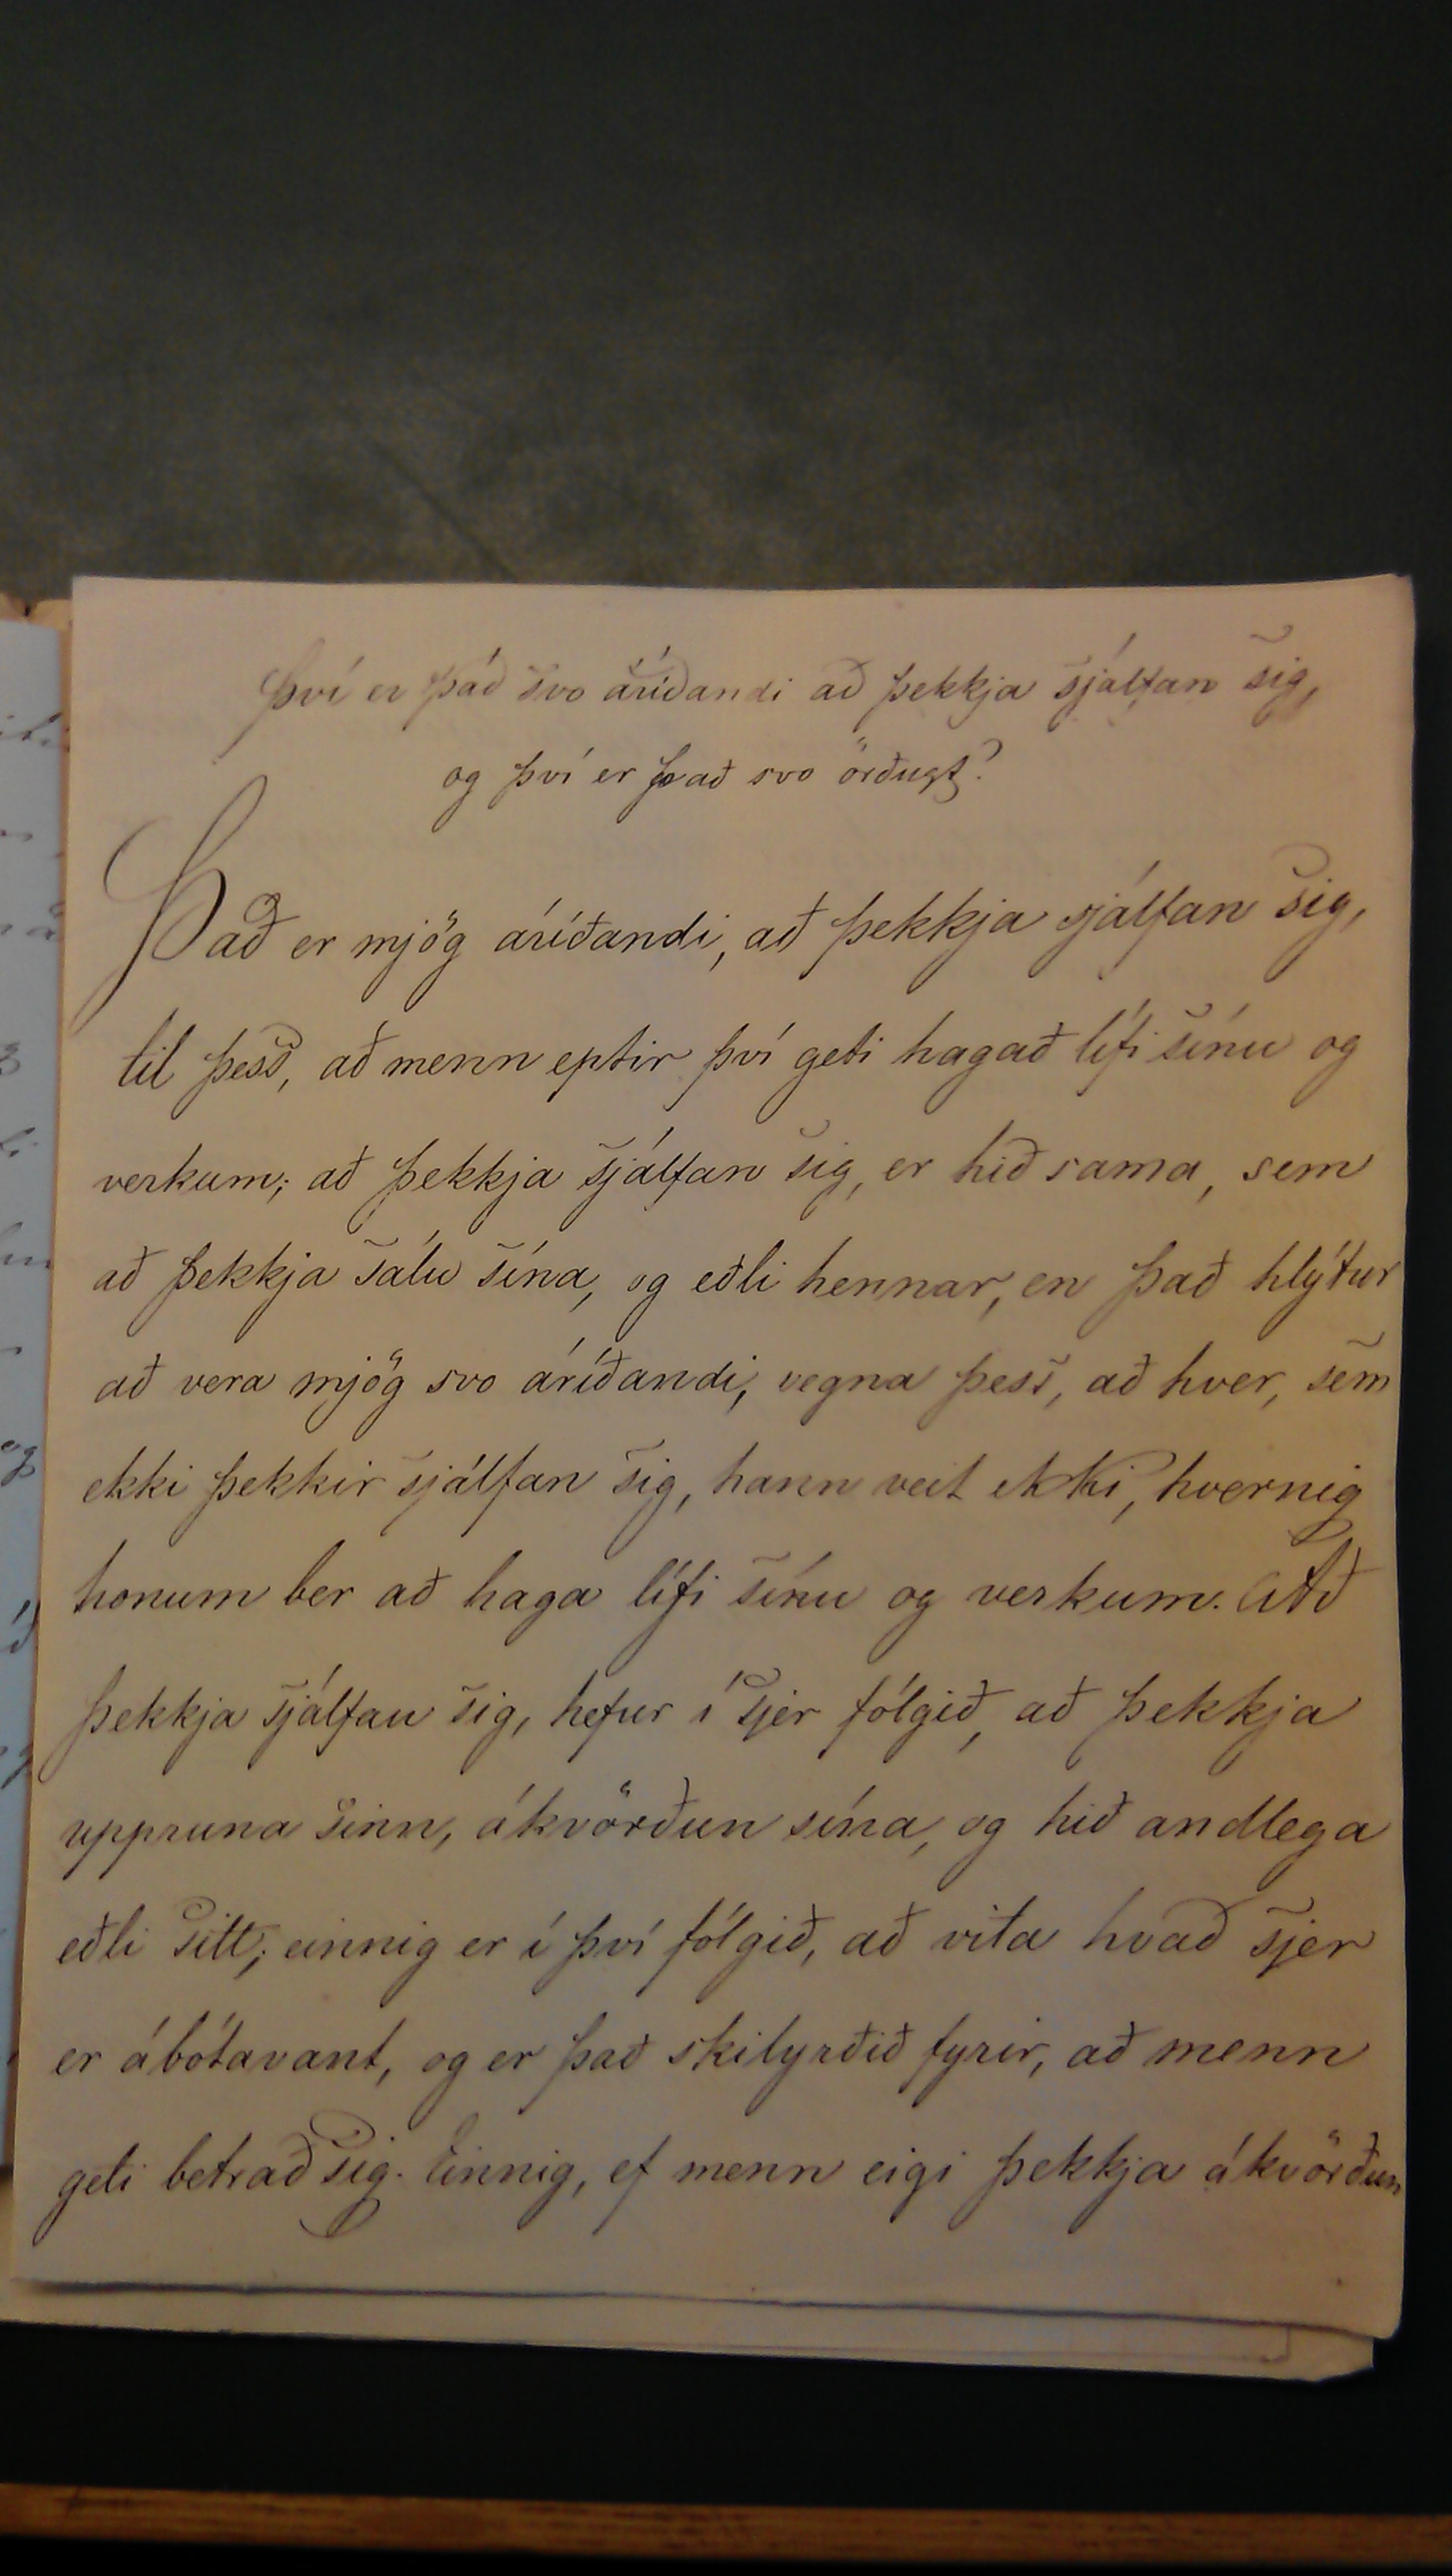 Því er það svo áríðandi að þekkja sjálfan sig,
og því er það svo örðugt?
Það er mjög áríðandi, að þekkja sjálfan sig,
til þess, að menn eptir því geti hagað lífi sínu og
verkum; að þekkja sjálfan sig, er hið sama, sem
að þekkja sálu sína, og eðli hennar, en það hlýtur
að vera mjög svo áríðandi, vegna þess, að hver, sem
ekki þekkir sjálfan sig, hann veit ekki, hvernig
honum ber að haga lífi sínu og verkum. Að
þekkja sjálfan sig, hefur í sjer fólgið, að þekkja
uppruna sinn, ákvörðun sína, og hið andlega
eðli sitt; einnig er í því fólgið, að vita hvað sjer
er ábótavant, og er það skilyrðið fyrir, að menn
geti betrað sig. Einnig, ef menn eigi þekkja ákvörðun